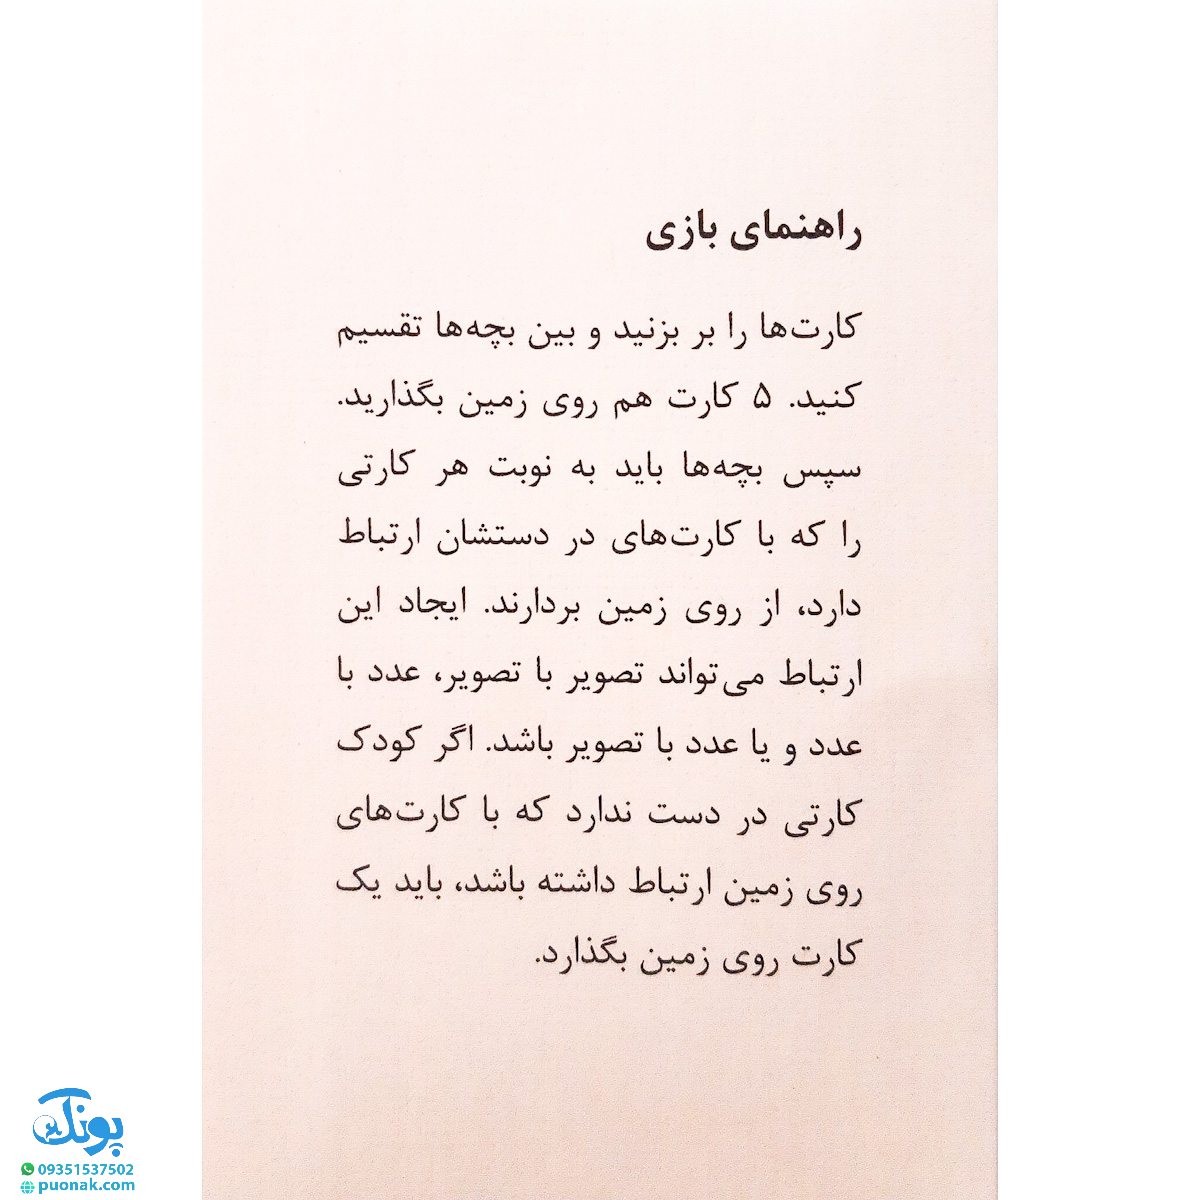 راهنمای بازی
کارت‌ها را بر بزنید و بین بچه‌ها تقسیم
کنید. ۵ کارت هم روی زمین بگذارید.
سپس بچه‌ها باید به نوبت هر کارتی
را که با کارت‌های در دستشان ارتباط
دارد، از روی زمین بردارند. ایجاد این
ارتباط می‌تواند تصویر با تصویر، عدد با
عدد و یا عدد با تصویر باشد. اگر کودک
کارتی در دست ندارد که با کارت‌های
روی زمین ارتباط داشته باشد، باید یک
کارت روی زمین بگذارد.
پونک
09351537502
puonak.com